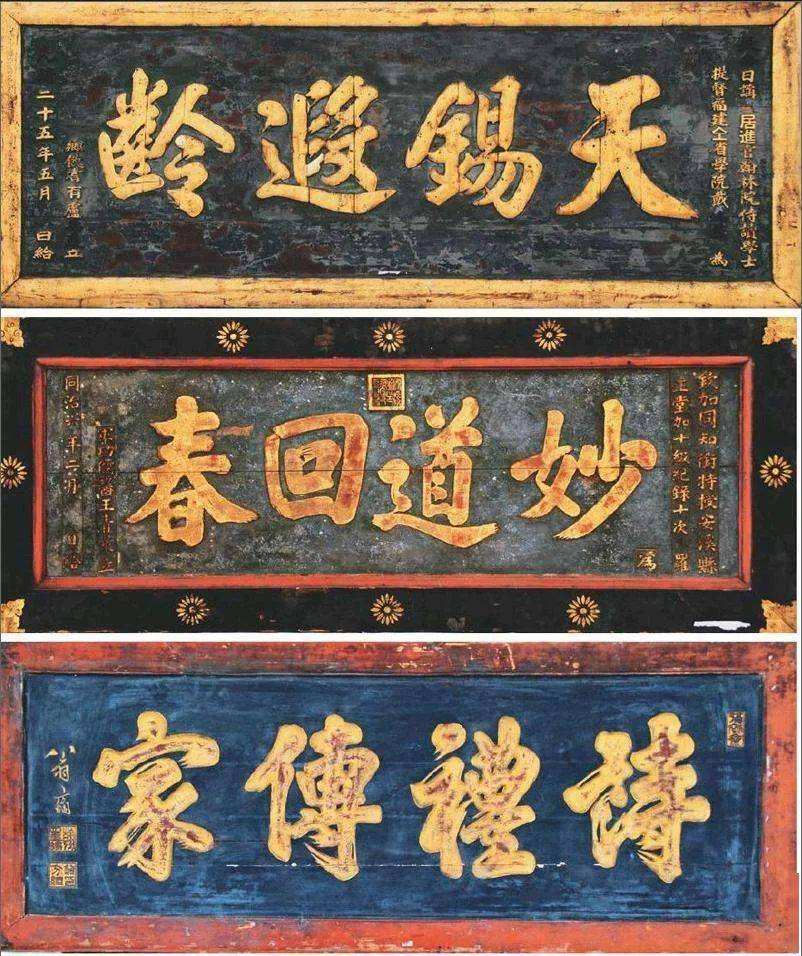 日講 居進官翰林院侍讀學士
提督福建全省學院戴 為
天錫遐齡
有廬 立
二十五年五月 日給
欽加同知銜特授安溪縣
正堂加十級紀錄十次 羅
為
妙道回春
醫王 立
同治 年二月 日給
詩禮傳家
八翁